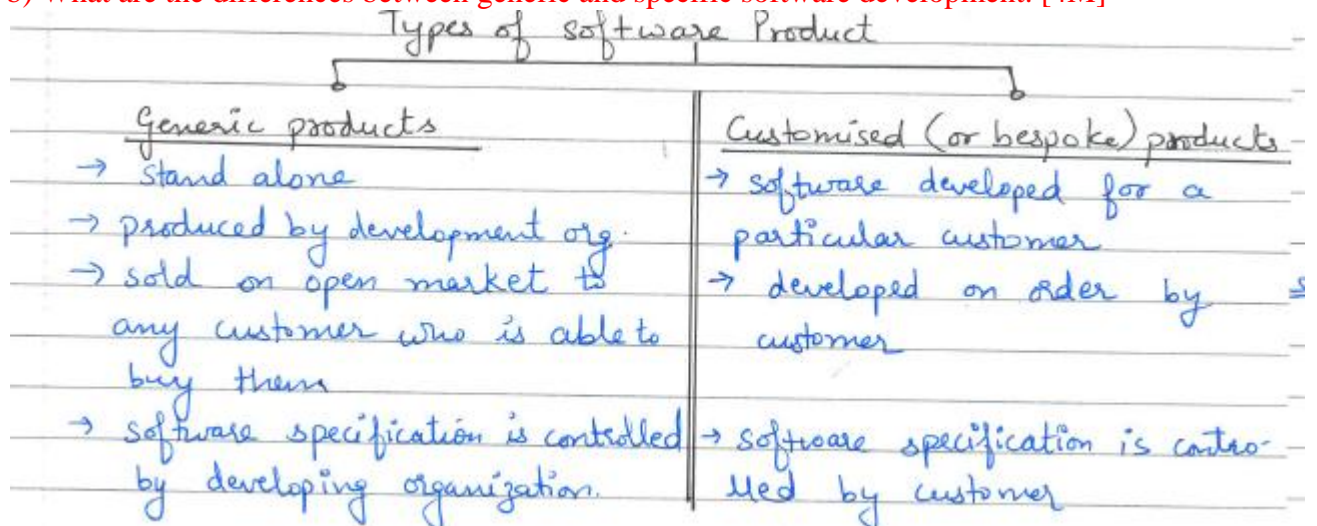 b) What are the differences between generic and specific software development. [4M]
Types of software Product
Generic products
→ stand alone
→ produced by development org.
→ sold on open market to
any customer who is able to
buy them
→ software specification is controlled
by developing organization.
Customised (or bespoke) products
→ software developed for a
particular customer
→ developed on order by
customer
→ software specification is contro-
lled by customer